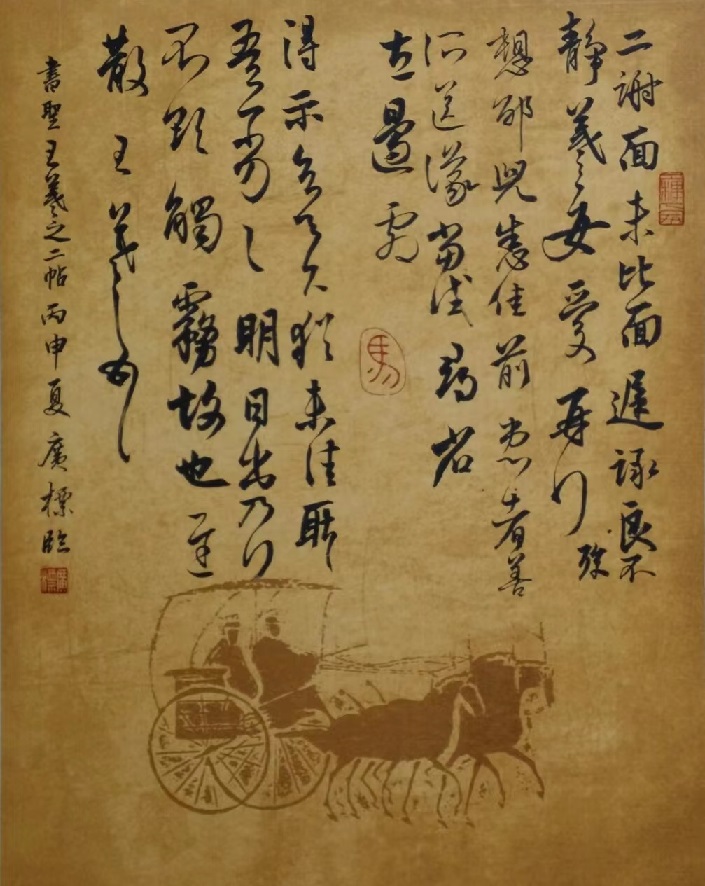 二謝面未比面遲詠良不
靜羲之女愛再拜
想邵兒悉佳前患者善
所送議當試尋省
左邊劇
馬
得示知足下猶未佳耿耿
吾亦劣劣明日出乃行
不欲觸霧故也遲
散王羲之頓首
書聖王羲之二帖丙申夏廣標臨